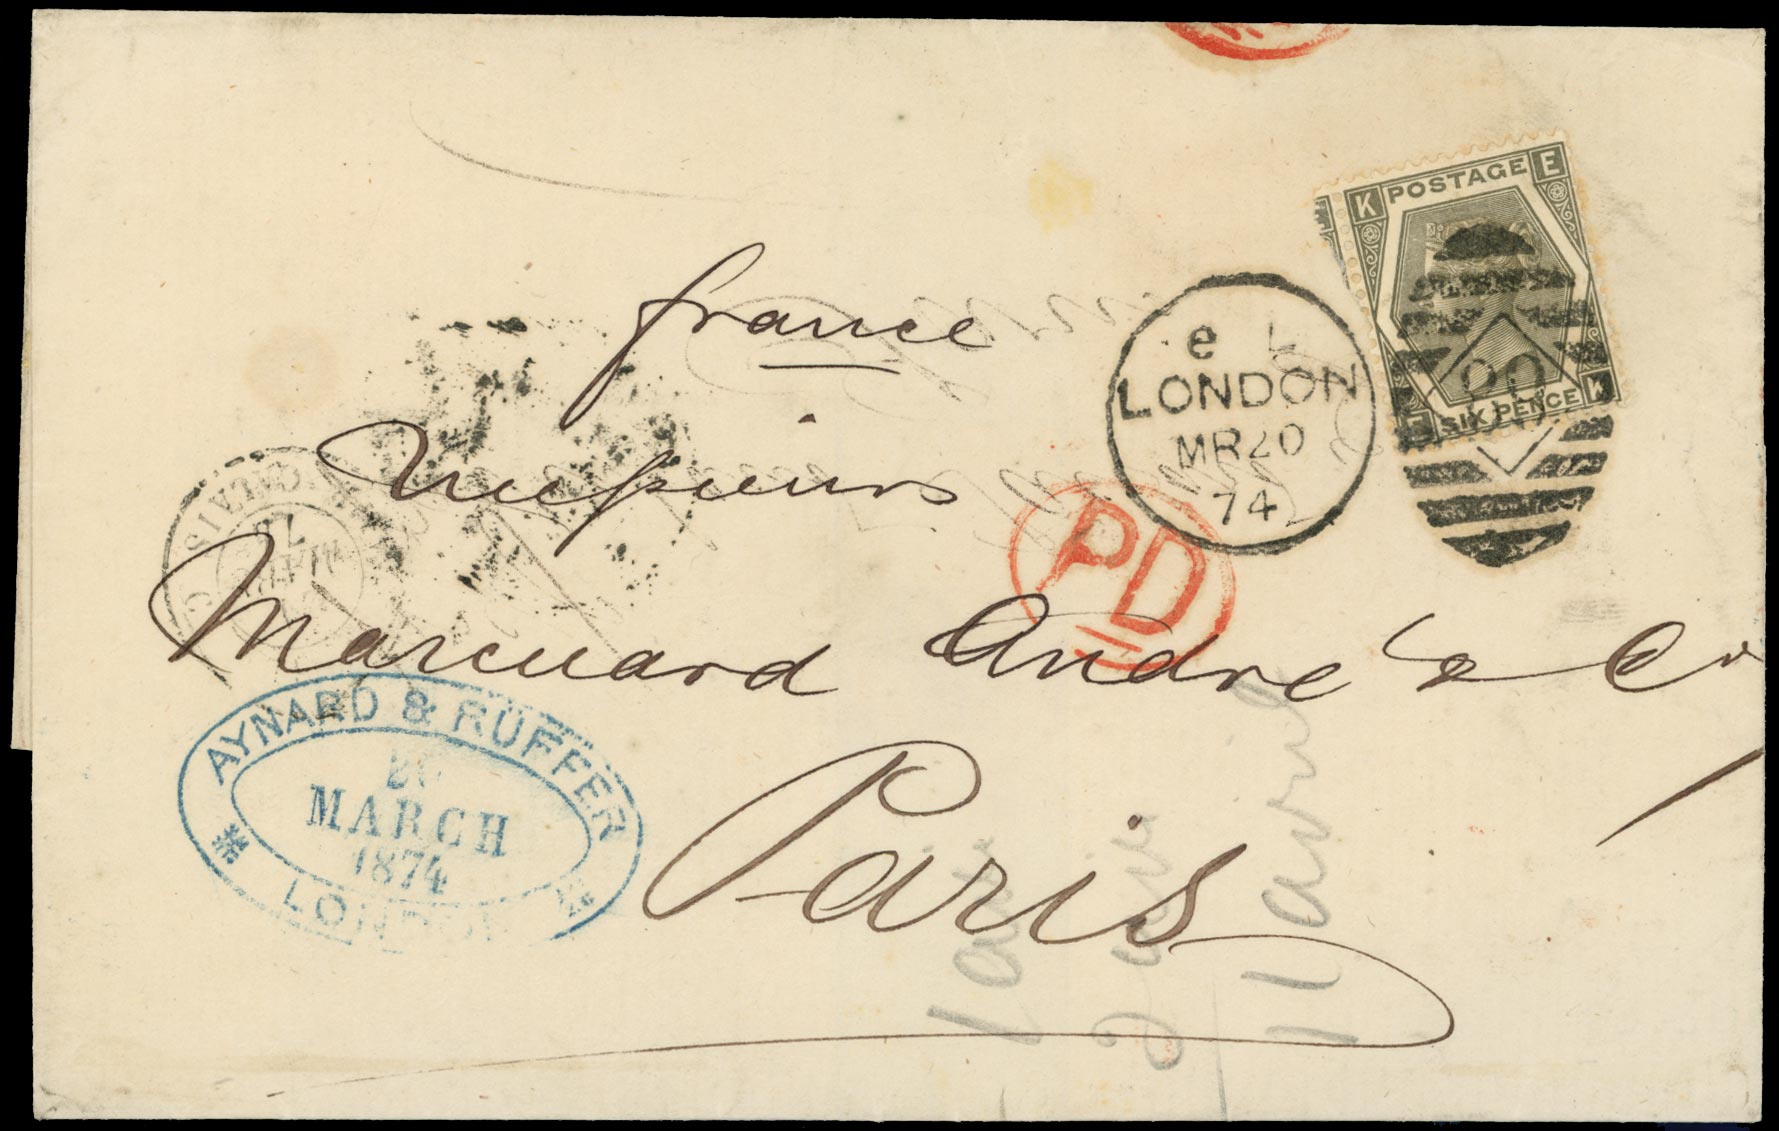 K POSTAGE E
SIX PENCE K
90
e L
LONDON
MR 20
74
PD
france
Messieurs
Marcuard André & Co
Paris
CALAIS
AYNARD & RÜFFER
20
MARCH
1874
LONDON